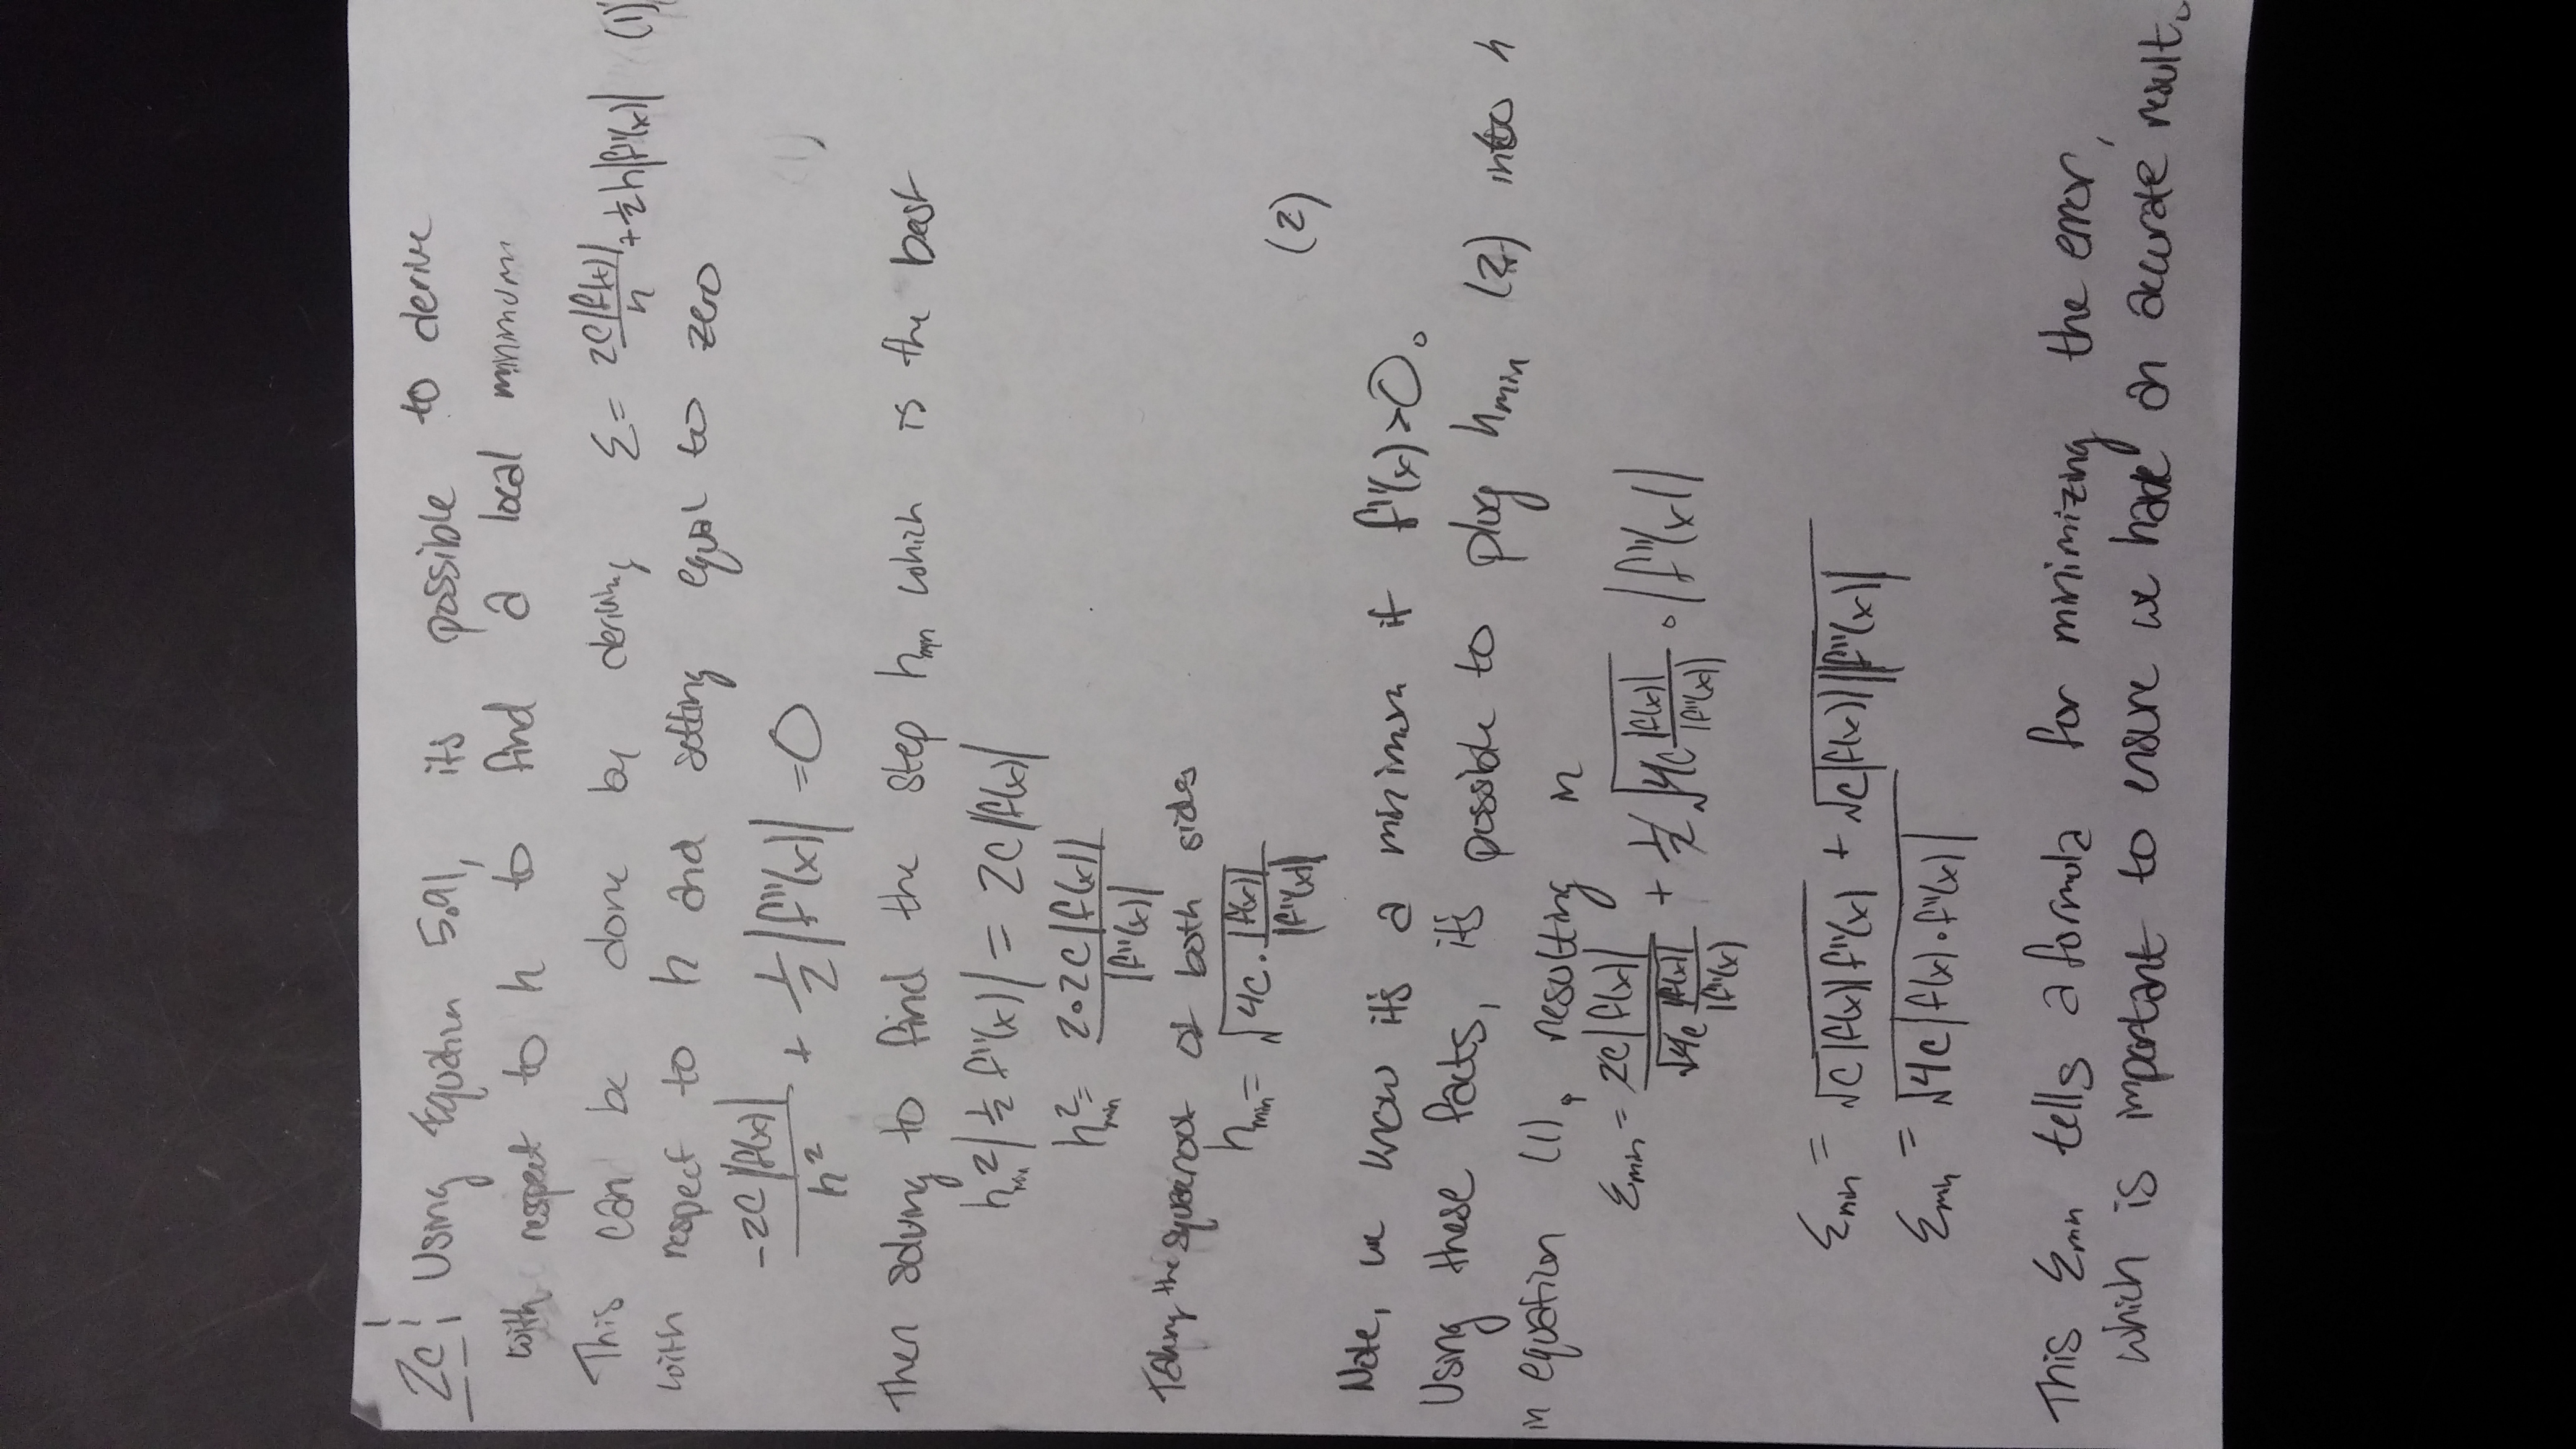 2c: Using Equation 5.91, its possible to derive
with respect to h to find a local minimum
This can be done by deriving Σ = 2C|f(x)|/h + ½h|f''(x)| (1)
with respect to h and setting equal to zero
-2C|f(x)|/h² + ½|f''(x)| = 0
(1)
Then solving to find the step hmin which is the best
hmin²|½f''(x)| = 2C|f(x)|
hmin² = 2·2C|f(x)|/|f''(x)|
Taking the squareroot of both sides
hmin = √(4C·|f(x)|/|f''(x)|) (2)
Note, we know its a minimum if f''(x)>0.
Using these facts, its possible to plug hmin (2) into h
in equation (1), resulting in
Σmin = 2C|f(x)|/√(4C|f(x)|/|f''(x)|) + ½√(4C|f(x)|/|f''(x)|) · |f''(x)|
Σmin = √(C|f(x)|f''(x)) + √(C|f(x)||f''(x)|)
Σmin = √(4C|f(x)·f''(x)|)
This Σmin tells a formula for minimizing the error,
which is important to ensure we have an accurate result.